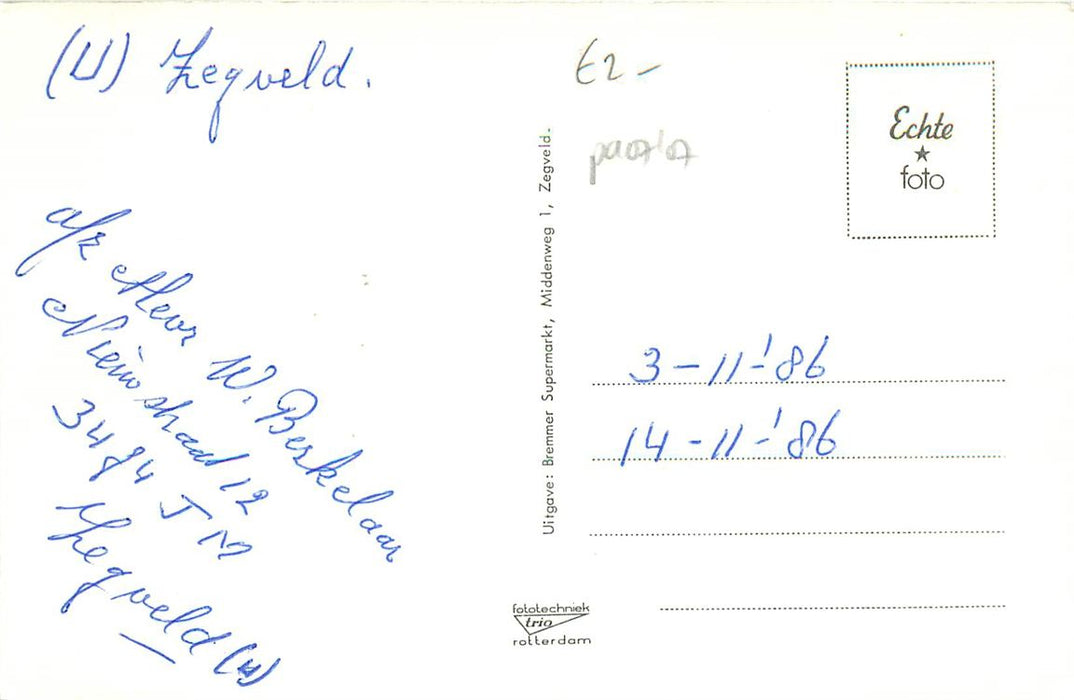 (U) Zegveld.
afz Mevr W. Berkelaar
Nieuwstraat 12
3474 JM
Zegveld (U)
Uitgave: Bremmer Supermarkt, Middenweg 1, Zegveld.
fototechniek
trio
rotterdam
€2-
Echte
★
foto
3-11-'86
14-11-'86